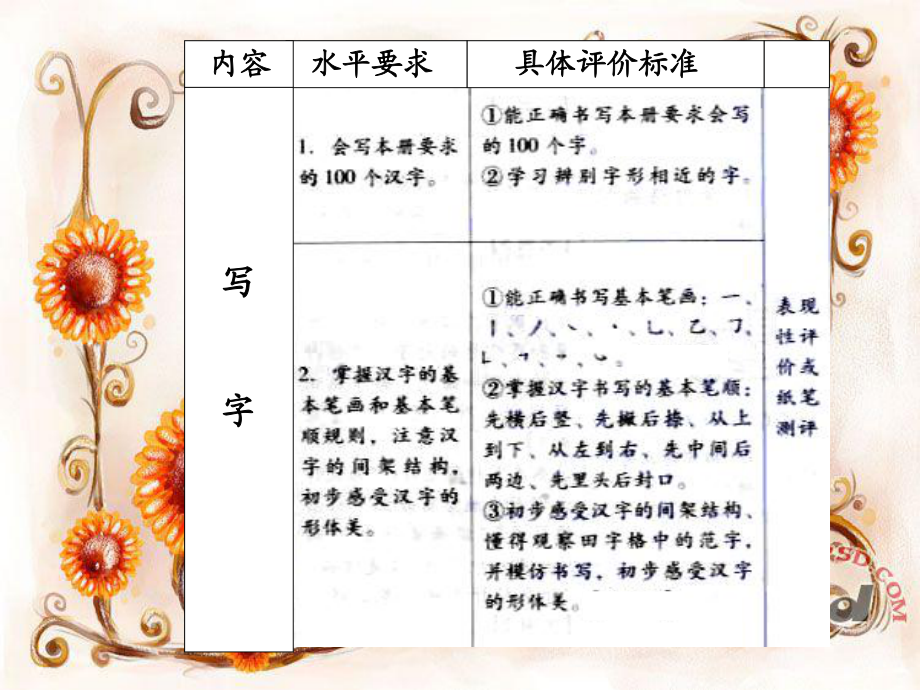 内容 水平要求 具体评价标准
写
字
1. 会写本册要求
的100个汉字。
①能正确书写本册要求会写
的100个字。
②学习辨别字形相近的字。
2. 掌握汉字的基
本笔画和基本笔
顺规则，注意汉
字的间架结构，
初步感受汉字的
形体美。
①能正确书写基本笔画：一、
丨、丿、丶、
②掌握汉字书写的基本笔顺：
先横后竖、先撇后捺、从上
到下、从左到右、先中间后
两边、先里头后封口。
③初步感受汉字的间架结构、
懂得观察田字格中的范字，
并模仿书写，初步感受汉字
的形体美。
表现
性评
价或
纸笔
测评